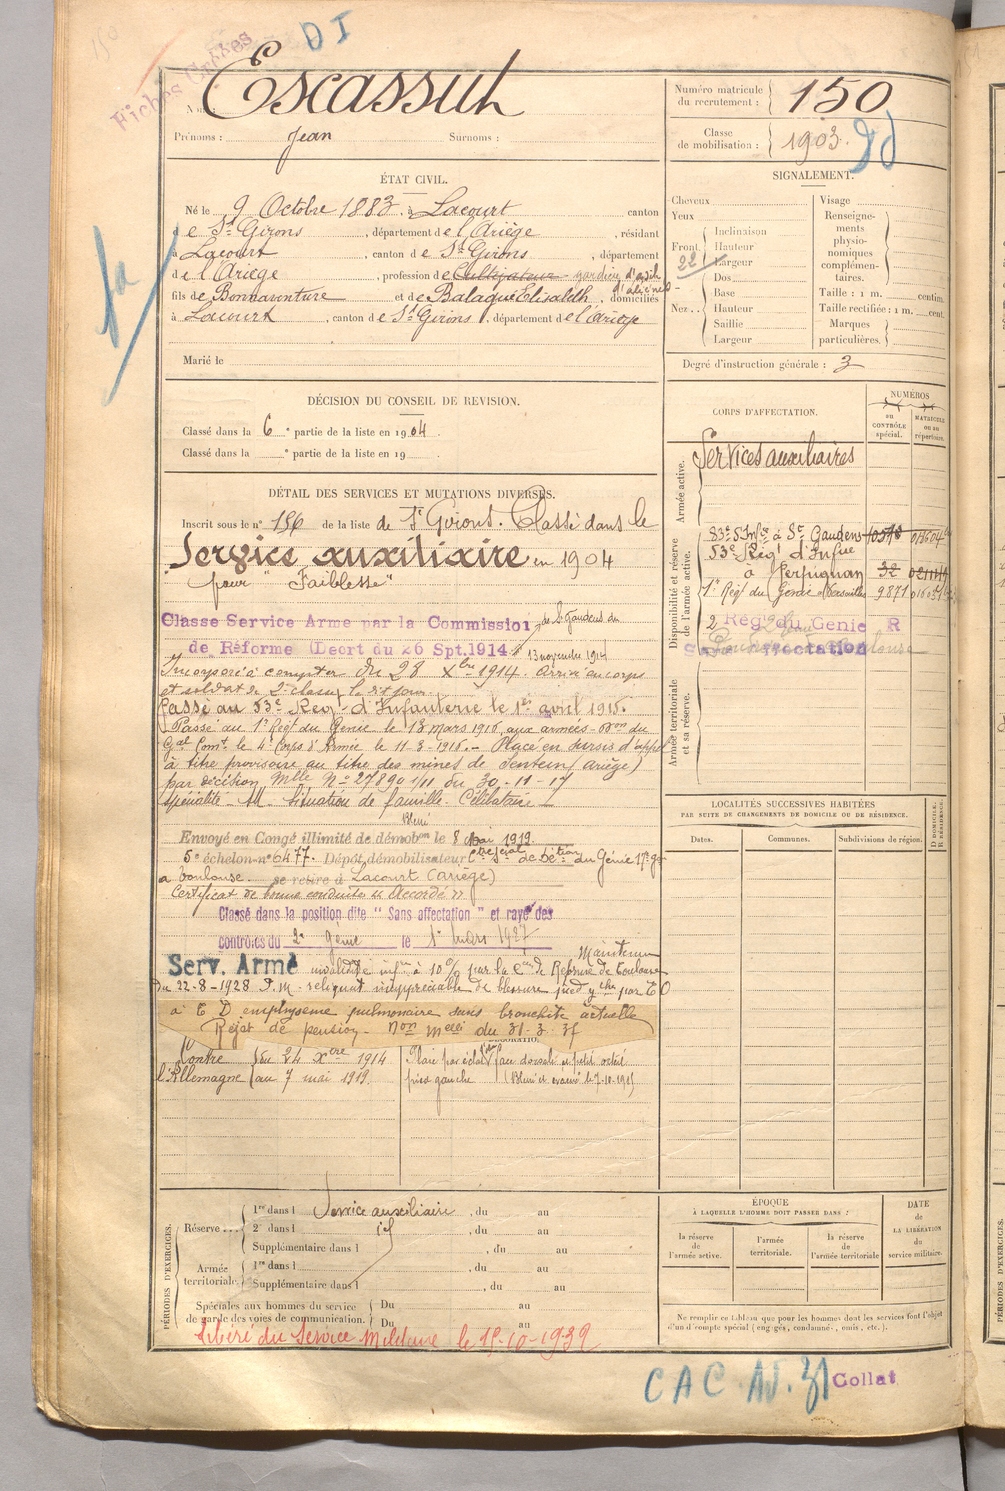 DI
Fiches
Nom : Escassut
Prénoms : Jean Surnoms :
Numéro matricule du recrutement : 150
Classe de mobilisation : 1903.
ÉTAT CIVIL.
Né le 9 Octobre 1883, à Lacourt canton
de St Girons, département de l'Ariège, résidant
à Lacourt, canton de St Girons, département
de l'Ariège, profession de Cultivateur gardien d'asile d'aliénés
fils de Bonnaventure et de Balagué Elisabeth, domiciliés
à Lacourt, canton de St Girons, département de l'Ariège
Marié le
SIGNALEMENT.
Cheveux
Yeux
Front
22
Inclinaison
Hauteur
Largeur
Nez
Dos
Base
Hauteur
Saillie
Largeur
Visage
Renseignements physionomiques complémentaires.
Taille : 1 m. centim.
Taille rectifiée : 1 m. cent.
Marques particulières.
Degré d'instruction générale : 3
DÉCISION DU CONSEIL DE REVISION.
Classé dans la 6e partie de la liste en 1904.
Classé dans la e partie de la liste en 19 .
CORPS D'AFFECTATION.
NUMÉROS
au contrôle spécial.
matricule ou au répertoire.
Armée active.
Services auxiliaires
Disponibilité et réserve de l'armée active.
83e d'Infie à St Gaudens
53e Régt d'Infie
à Perpignan 32
1er Régt du Génie Versailles 9871
2 Rég du Génie R
Sans affectation
Armée territoriale et sa réserve.
DÉTAIL DES SERVICES ET MUTATIONS DIVERSES.
Inscrit sous le n° 156 de la liste de St Girons. Classé dans le
Service auxiliaire en 1904
pour "Faiblesse"
Classe Service Arme par la Commission de St Gaudens du
de Réforme (Decrt du 26 Spt.1914 13 novembre 1914
Incorporé à compter du 28 Xbre 1914. Arrivé au corps
et soldat de 2e classe le dit jour.
Passé au 53e Rég. d'Infanterie le 1er avril 1915.
Passé au 1er Régt du Génie le 13 mars 1916, aux armées - Don du
Gal Comt le 4e Corps d'Armée le 11-3-1916. - Placé en sursis d'appel
à titre provisoire au titre des mines de Sentein (Ariège)
par décision Mlle N° 27890 1/11 du 30-11-17
spécialité - M. Situation de famille. Célibataire
Envoyé en Congé illimité de démobon le 8 Mai 1919.
5e échelon n° 6477. Dépôt démobilisateur du Génie
a Toulouse. se retire à Lacourt (Ariège)
Certificat de bonne conduite "Accordé"
Classé dans la position dite " Sans affectation " et rayé des
contrôles du 2e génie le 1er mars 1927
Serv. Armé Maintenu
invalidité infre à 10% par la Con de Réforme de Toulouse
du 22-8-1928 P.M. reliquat inappréciable de blessure pied gche par EO
à E D emphysème pulmonaire sans bronchite actuelle
Rejet de pension - Non Melle du 31-3-31
Contre l'Allemagne
du 24 Xbre 1914
au 7 mai 1919.
Plaie par éclat d'obus face dorsale et petit orteil
pied gauche (Blessé et évacué le 7-10-1915)
LOCALITÉS SUCCESSIVES HABITÉES
PAR SUITE DE CHANGEMENTS DE DOMICILE OU DE RÉSIDENCE.
Dates.
Communes.
Subdivisions de région.
D DOMICILE.
R RÉSIDENCE.
PÉRIODES D'EXERCICES.
Réserve
1re dans l Service auxiliaire, du au
2e dans l id , du au
Supplémentaire dans l , du au
Armée territoriale.
1re dans l , du au
Supplémentaire dans l , du au
Spéciales aux hommes du service de garde des voies de communication.
Du au
Du au
Libéré du Service Militaire le 15-10-1939
ÉPOQUE
À LAQUELLE L'HOMME DOIT PASSER DANS :
la réserve de l'armée active.
l'armée territoriale.
la réserve de l'armée territoriale
DATE de LA LIBÉRATION du service militaire.
Ne remplir ce tableau que pour les hommes dont les services font l'objet
d'un décompte spécial (engagés, condamnés, omis, etc.).
CAC AJ. 31
Collat
PÉRIODES D'EXERCICES.